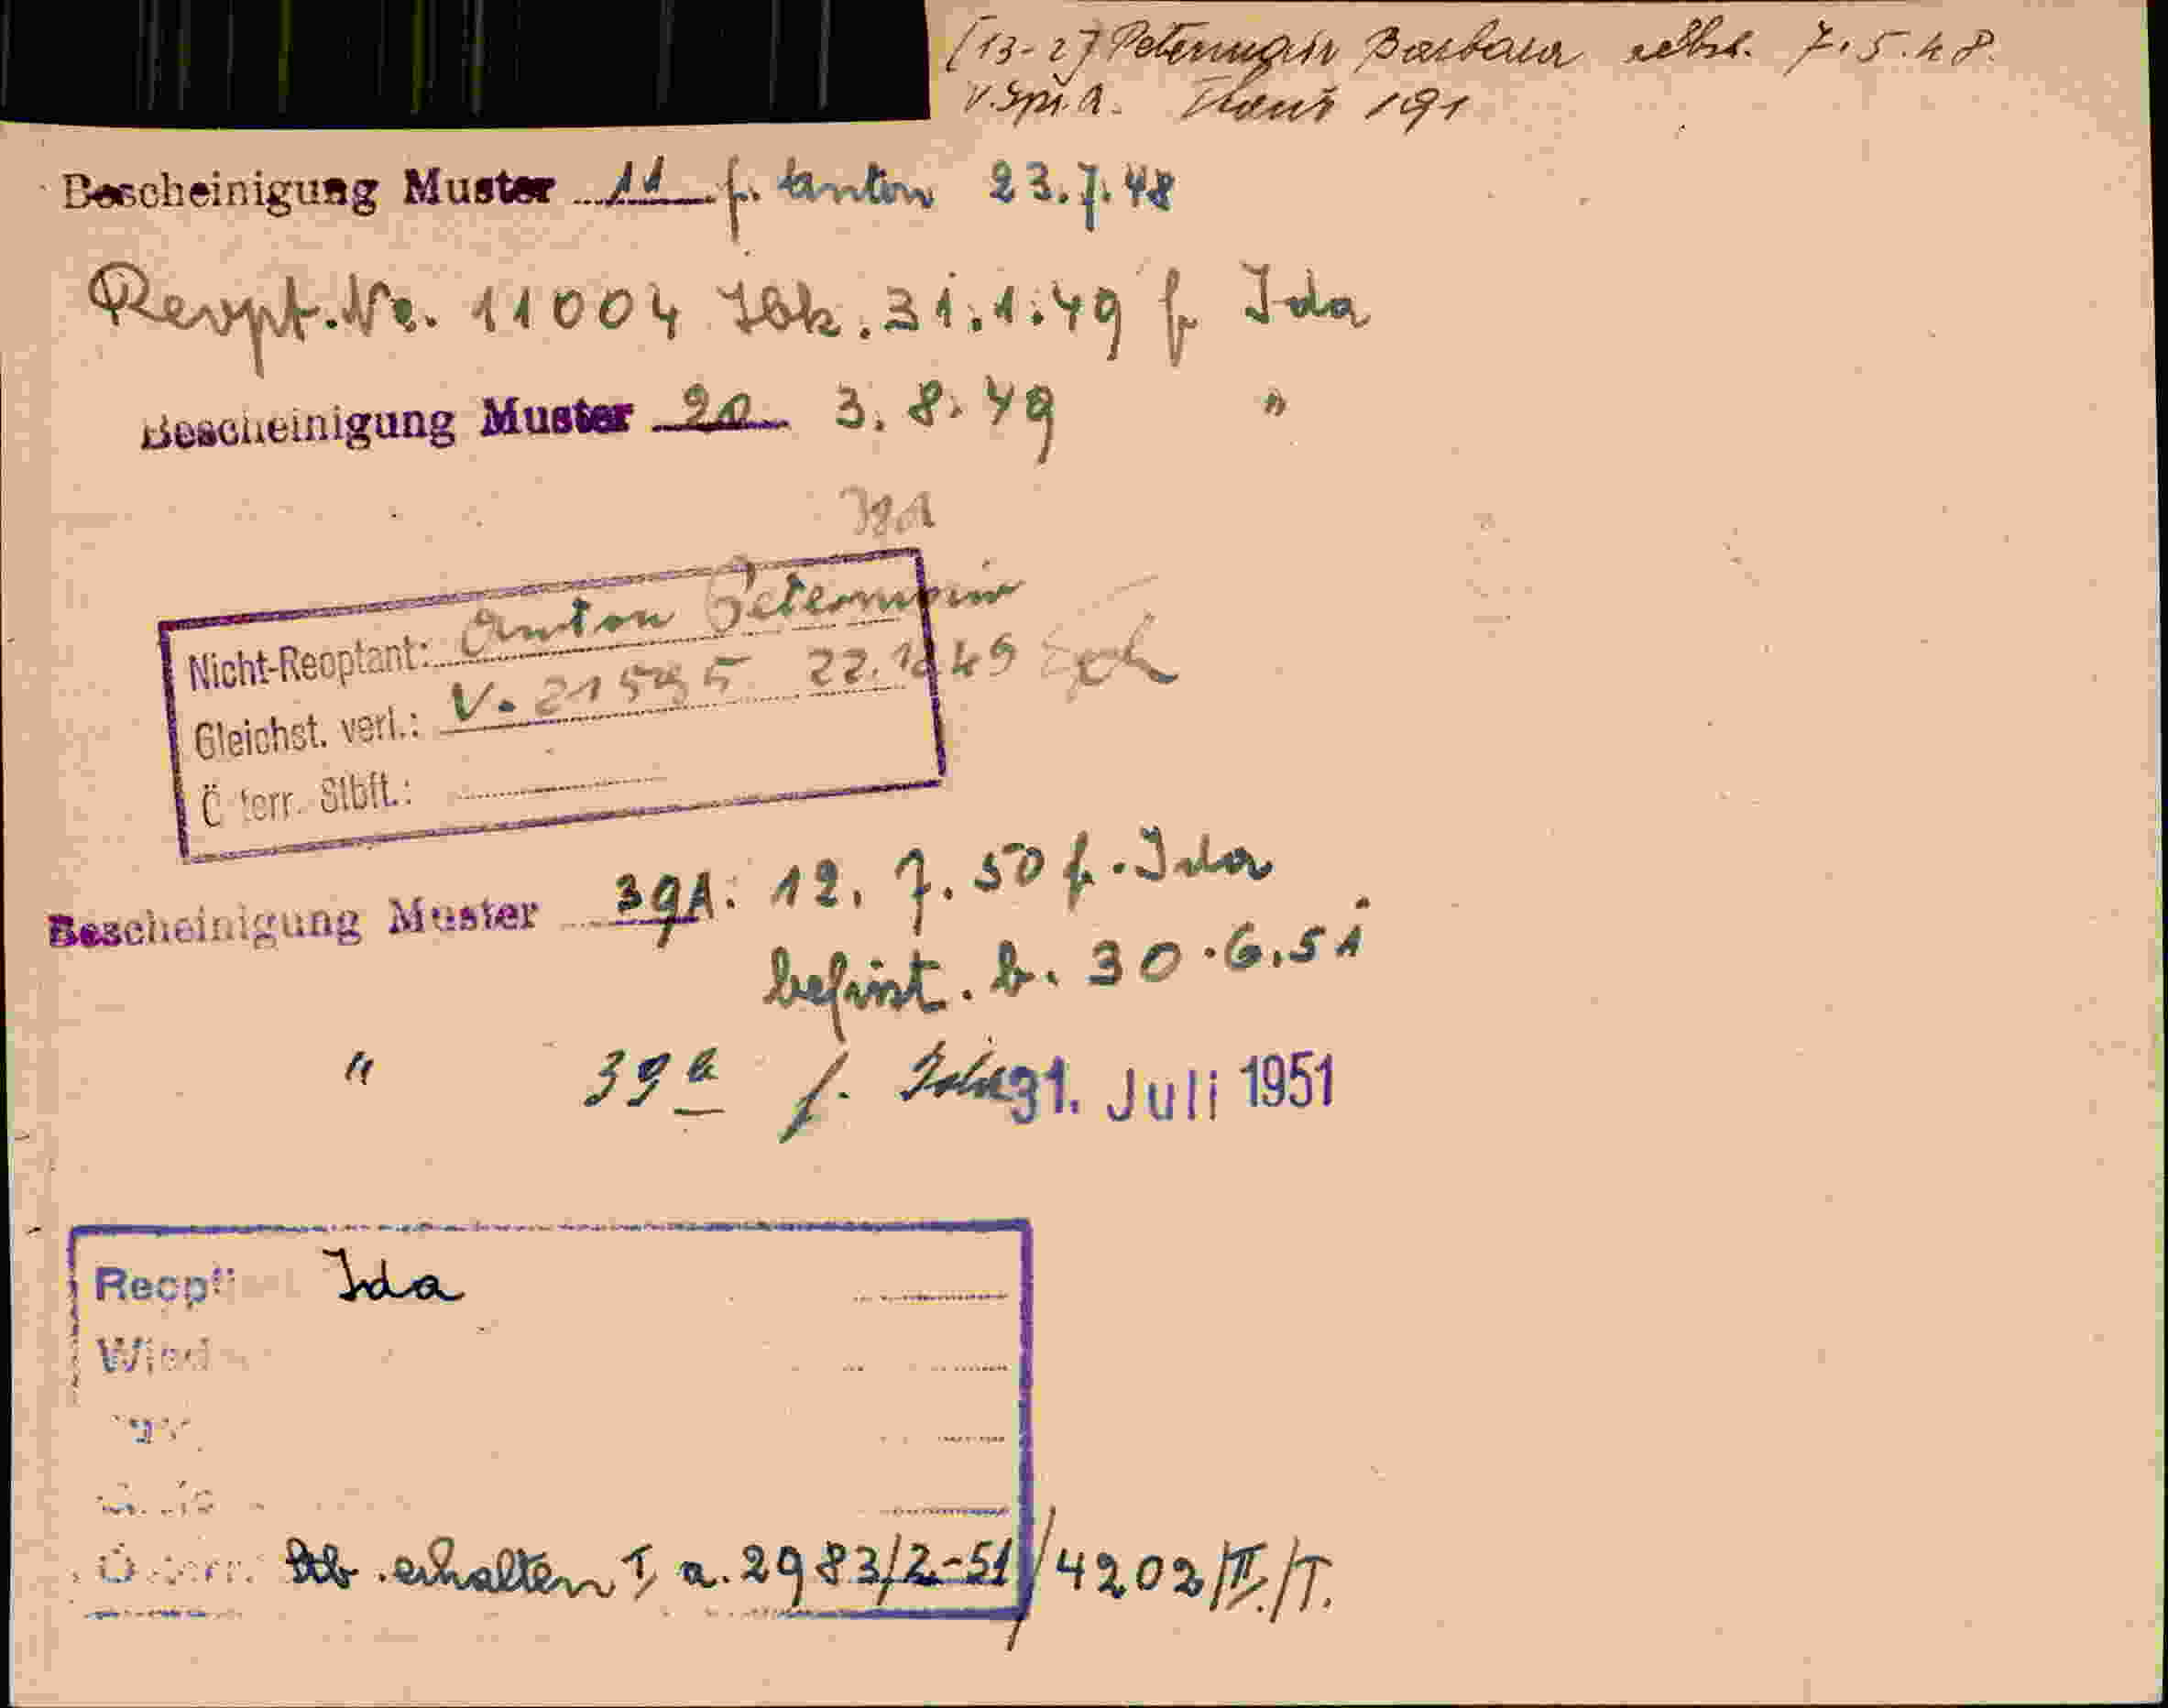 [13-27 Petermair Barbara selbst. 7.5.48.
V. Spi. a. Thaur 191
Bescheinigung Muster 11 f. Anton 23.7.48
Reopt. Nr. 11004 Ibk. 31.1.49 f. Ida
Bescheinigung Muster 20 3.8.49 "
Nicht-Reoptant: Anton Petermair
Gleichst. verl.: V. 22.12.49
Österr. Stbft.:
Bescheinigung Muster 39A: 12.7.50 f. Ida
befrist. b. 30.6.51
" 39a f. Ida 31. Juli 1951
Reopti Ida
Wied
Österr. Stb. erhalten I a. 2983/2-51/4202/II./T.